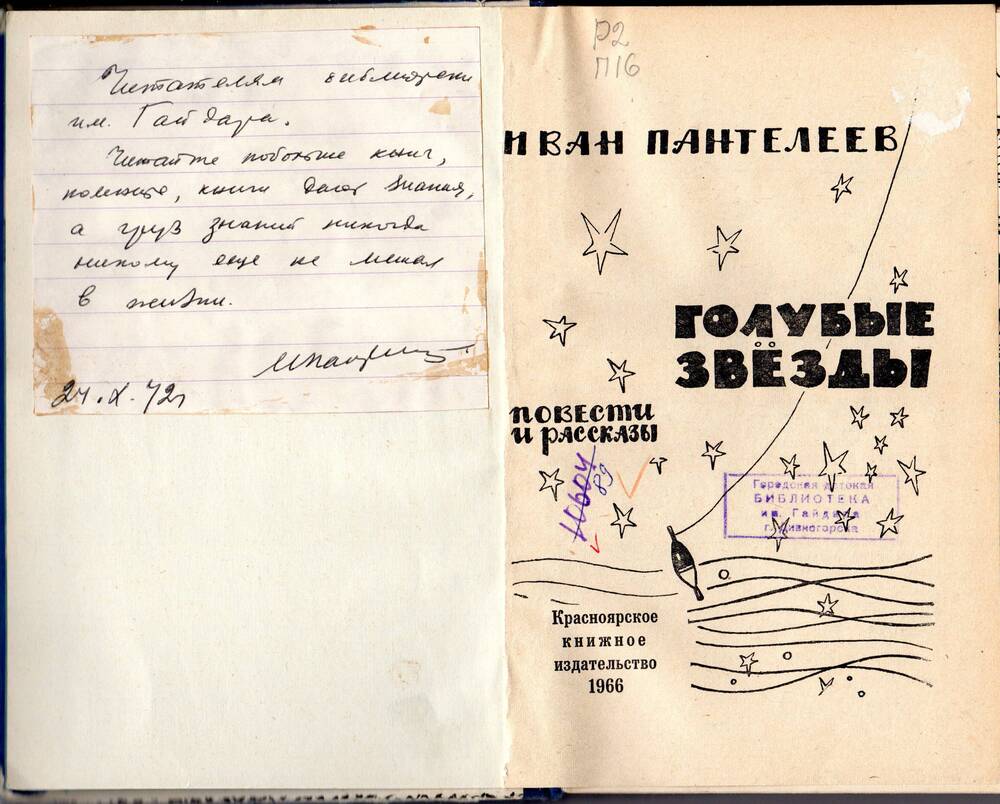 Читателям библиотеки
им. Гайдара.
Читайте побольше книг,
помните, книги дают знания,
а груз знаний никогда
никому еще не мешал
в жизни.
24.X.72г
Р2
П16
ИВАН ПАНТЕЛЕЕВ
ГОЛУБЫЕ
ЗВЁЗДЫ
ПОВЕСТИ
И РАССКАЗЫ
89
Городская детская
БИБЛИОТЕКА
им. Гайдара
г. Дивногорска
Красноярское
книжное
издательство
1966